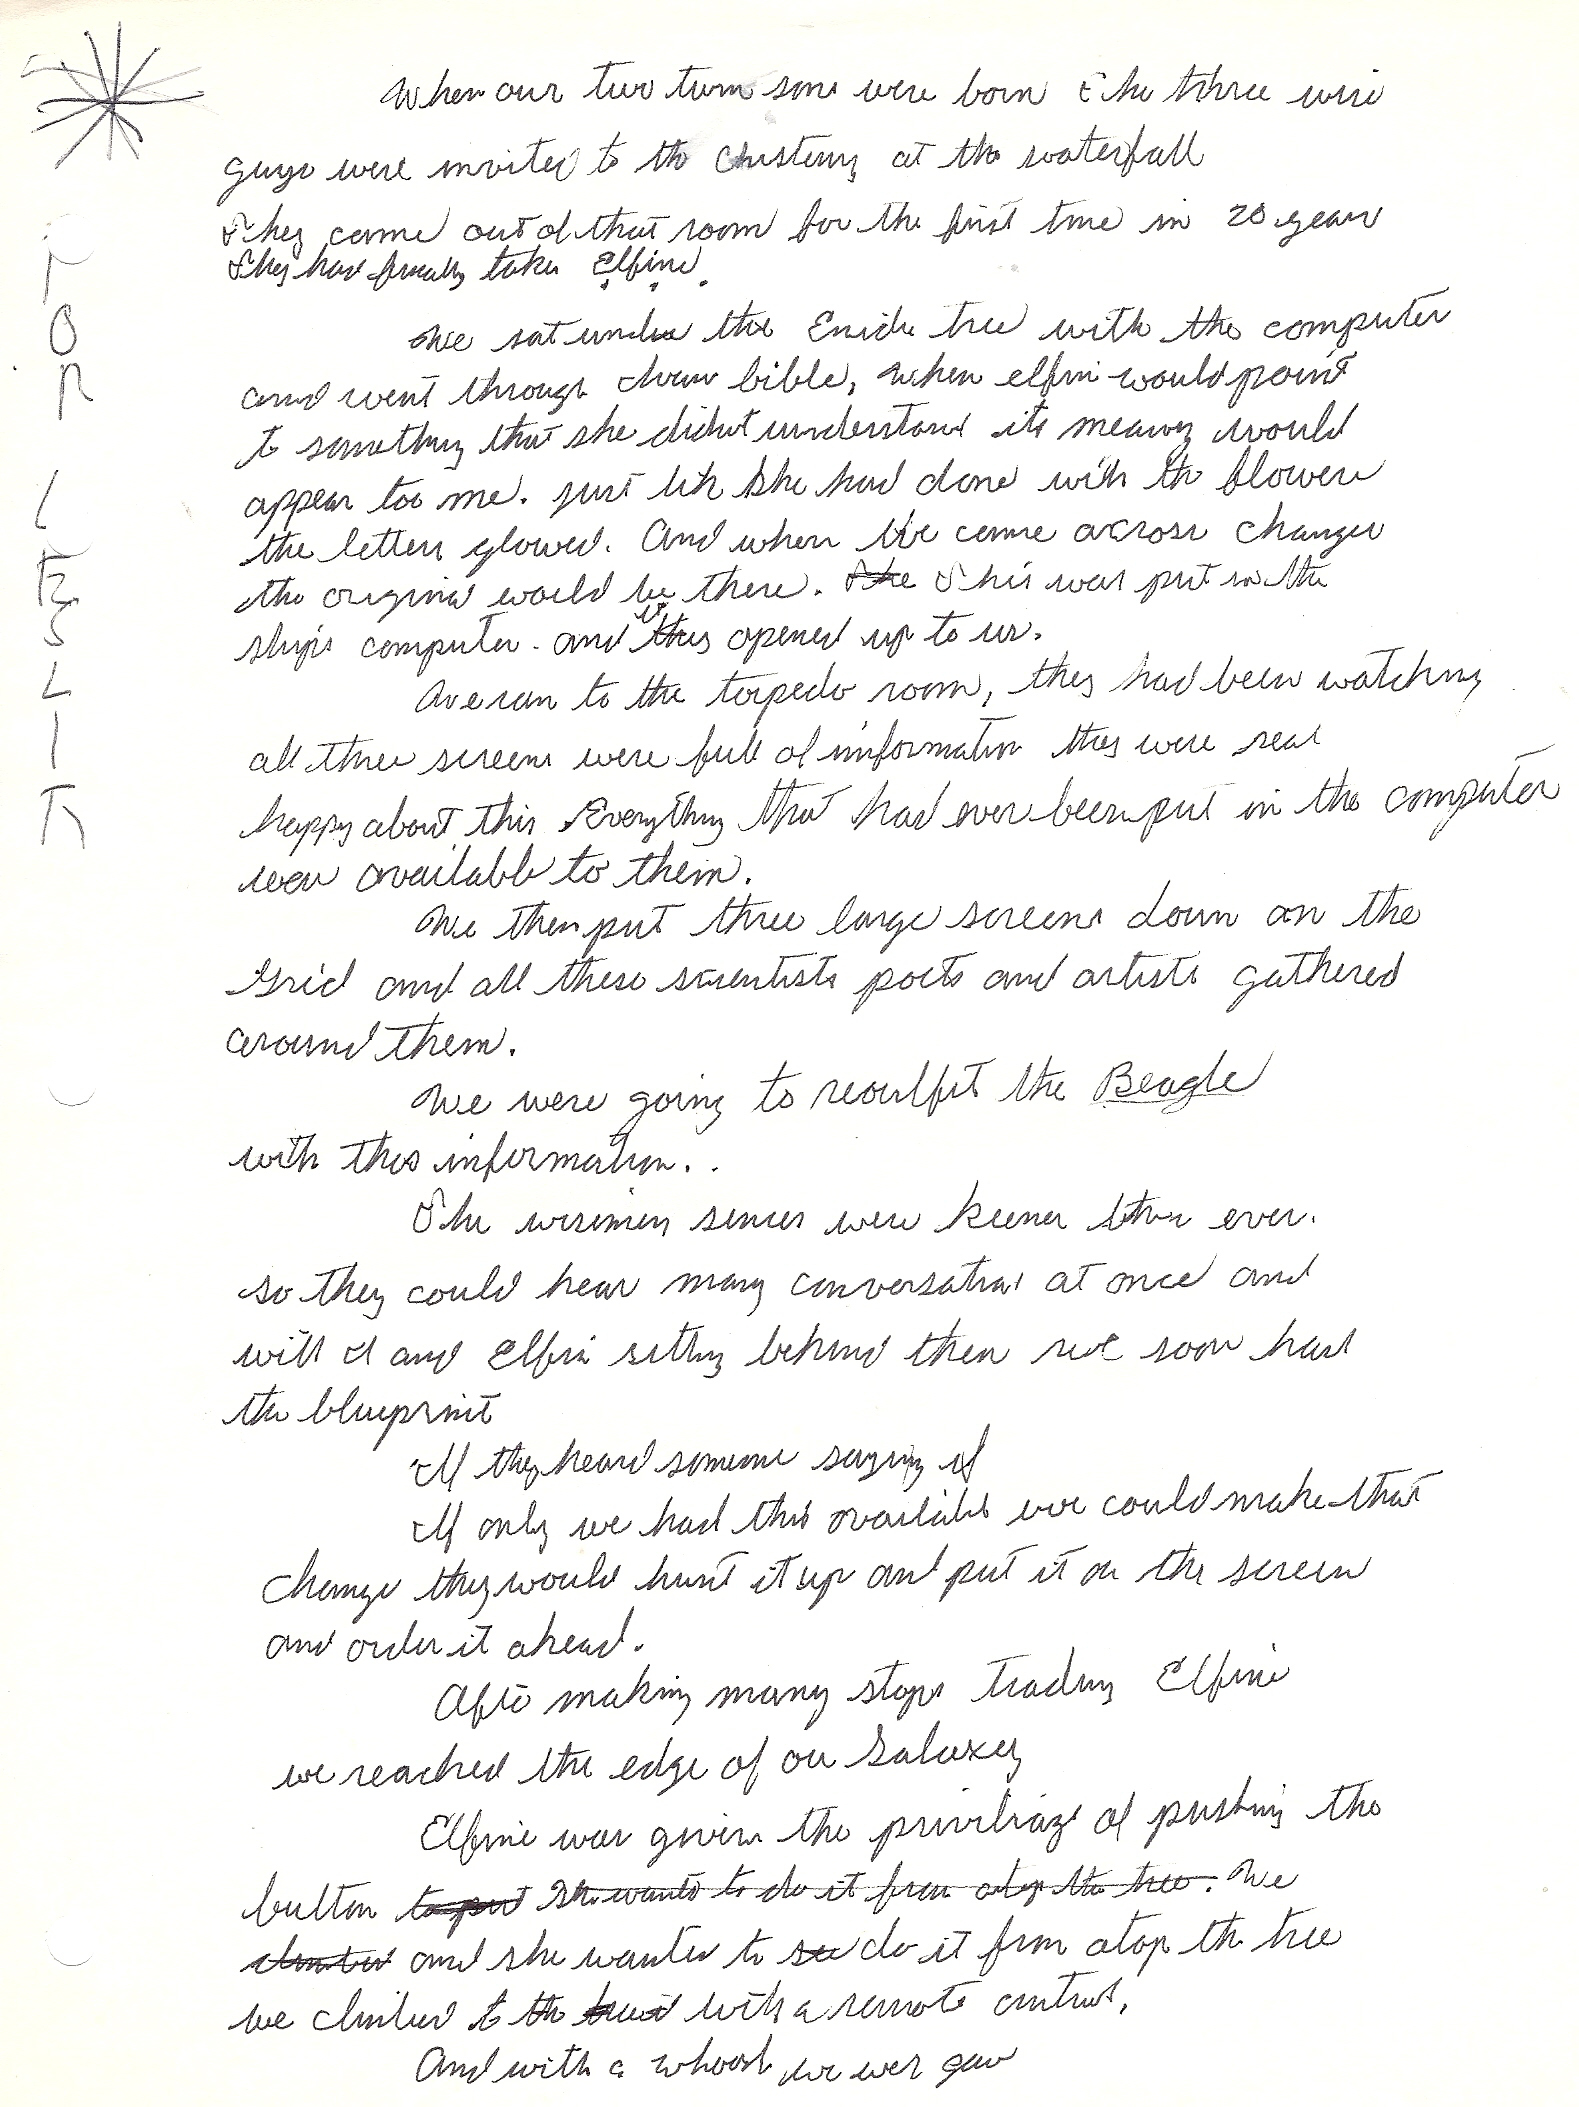 When our two twin sons were born the three wise
guys were invited to the Christening at the waterfall
They came out of that room for the first time in 20 years
They had finally taken Elfine.
We sat under the tree with the computer
and went through bible, when elfin would point
to something that she didnt understand its meaning would
appear too me. just like she had done with the flowers
the letters glowed. And when we came across changes
the original would be there. The This was put in the
ships computer. and opened up to us.
We ran to the torpedo room, they had been watching
all three screens were full of information they were real
happy about this Everything that had ever been put in the computer
was available to them.
We then put three large screens down on the
Grid and all these scientists poets and artists gathered
around them.
We were going to reoutfit the Beagle
with this information..
The wisemen senses were keener than ever.
so they could hear many conversations at once and
with I and Elfin sitting behind them we soon had
the blueprint
If they heard someone saying if
If only we had this available we could make that
change they would hunt it up and put it on the screen
and order it ahead.
After making many stops trading Elfine
we reached the edge of our Galaxey
Elfine was given the priviliage of pushing the
button to put She wants to do it from atop the tree. We
climbed and she wanted to see do it from atop the tree
we climbed to the with a remote control,
And with a whoosh we were gone